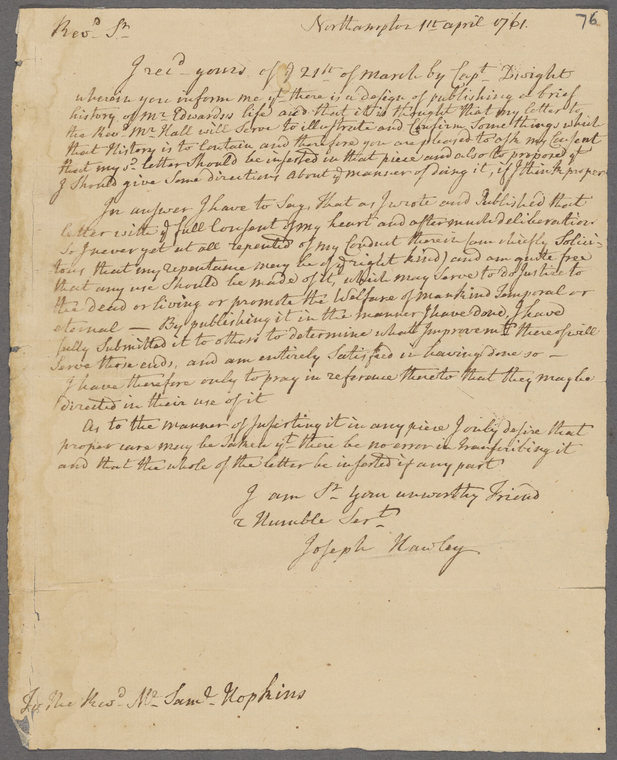 76
Revd. Sr. Northampton 1st april 1761.
I recd. yours of ye 21st of March by Capt. Dwight
wherein you inform me yt. there is a design of publishing a brief
history of Mr Edwards's life and that it is thought that my letter to
the Revd. Mr Hall will serve to illustrate and Confirm Some things which
that History is to Contain and therefore you are pleased to ask my Consent
that my sd. letter Should be inserted in that piece and also to propose yt
I Should give Some directions about ye manner of doing it, if I think proper
In answer I have to Say, that as I wrote and Published that
letter with ye full Consent of my heart and after much deliberation
So I never yet at all repented of my Conduct therein (am chiefly Solici-
tous that my repentance may be of ye right kind) and am quite free
that any use Should be made of it, which may Serve to do Justice to
the dead or living or promote the Welfare of mankind Temporal or
eternal — By publishing it in the manner I have done, I have
fully Submitted it to others to determine what Improvemt. thereof will
Serve those ends, and am entirely Satisfied in having done so —
I have therefore only to pray in reference thereto that they may be
directed in their use of it
As to the manner of Inserting it in any piece I only desire that
proper care may be taken yt. there be no error in transcribing it
and that the whole of the letter be inserted if any part
I am Sr. Your unworthy Friend
& Humble Sert.
Joseph Hawley
To the Revd. Mr. Saml. Hopkins